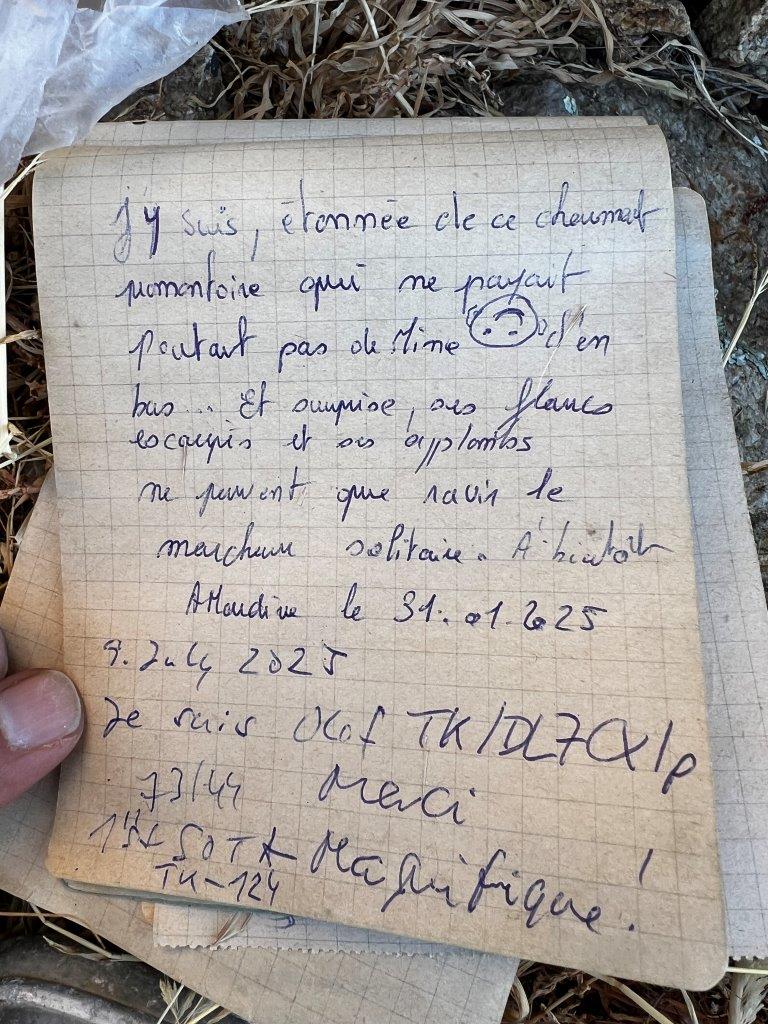 J'y suis, étonnée de ce charmant
promontoire qui ne payait
pourtant pas de Mine d'en
bas... Et surprise, ses flancs
escarpés et ses applombs
ne peuvent que ravir le
marcheur solitaire. A bientôt
Amandine le 31.01.2025
9. July 2025
Je suis Olof TK/DL7CX/p
73/44 Merci
1st SOTA Magnifique!
TK-124